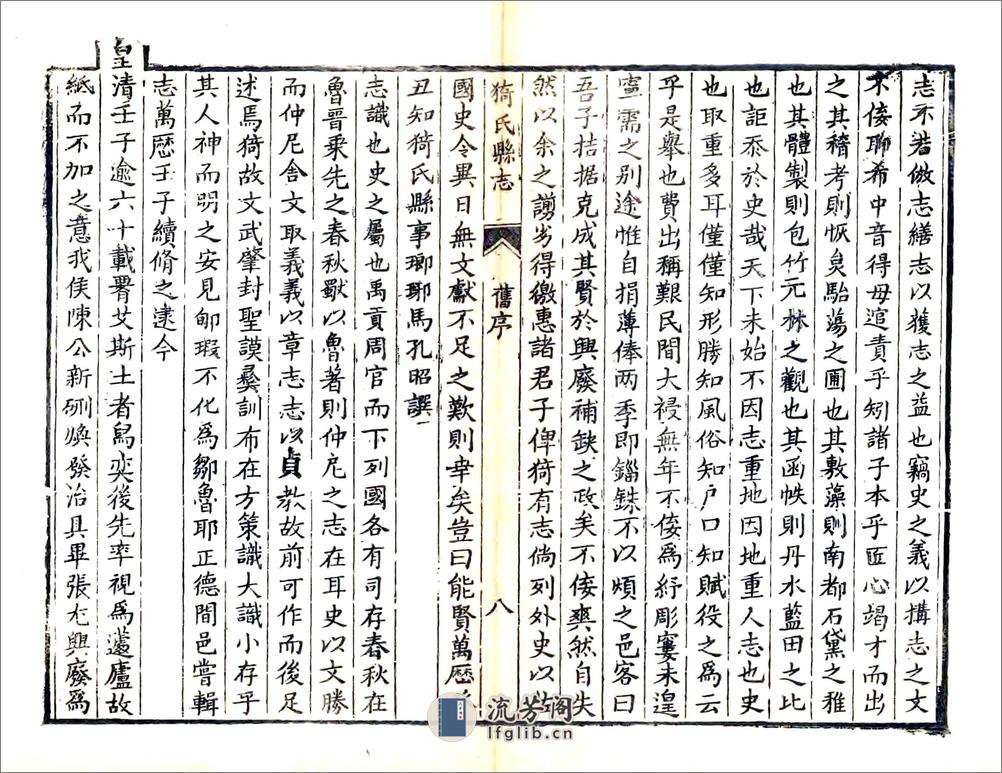 志不若倣志繕志以獲志之益也竊史之義以搆志之文
不佞聊希中音得毋逭責乎矧諸子本乎匠心竭才而出
之其稽考則恢炱駘蕩之圃也其敷藻則南都石黛之雅
也其體製則包竹元林之觀也其函帙則丹水藍田之比
也詎忝於史哉天下未始不因志重地因地重人志也史
也取重多耳僅僅知形勝知風俗知戶口知賦役之為云
乎是舉也費出稱艱民間大祲無年不佞為紓彫窶未遑
寧需之別途惟自捐薄俸两季即錙銖不以煩之邑客曰
吾子拮据克成其賢於興廢補缺之政矣不佞爽然自失
然以余之謭劣得徼惠諸君子俾猗有志倘列外史以
猗氏縣志
舊序
八
國史令異日無文獻不足之歎則幸矣豈曰能賢萬歷
丑知猗氏縣事瑯琊馬孔昭譔
志識也史之屬也禹貢周官而下列國各有司存春秋在
魯晉乘先之春秋獸以魯著則仲尼之志在耳史以文勝
而仲尼舍文取義義以章志志以貞教故前可作而後足
述焉猗故文武肇封聖謨彝訓布在方策識大識小存乎
其人神而明之安見郇瑕不化為鄒魯耶正德間邑嘗輯
志萬歷壬子續脩之逮今
皇清壬子逾六十載署艾斯土者舄奕後先率視為蘧廬故
紙而不加之意我侯陳公新硎煥發治具畢張尢興廢為
流芳阁
lfglib.cn